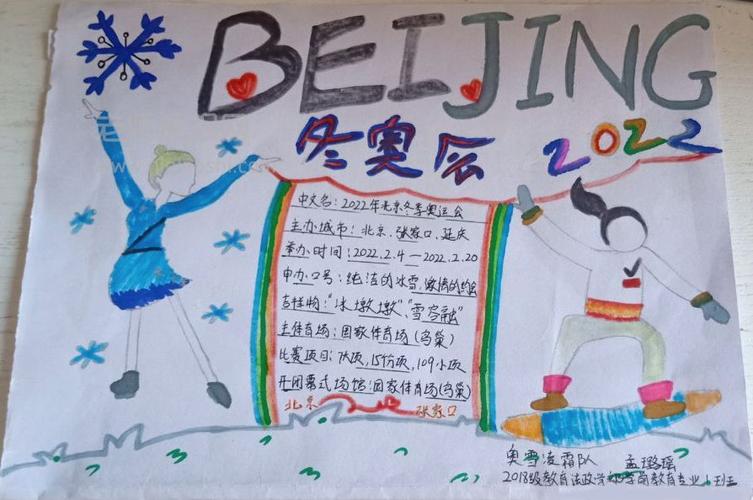 BEIJING
冬奥会 2022
中文名：2022年北京冬季奥运会
主办城市：北京、张家口、延庆
举办时间：2022.2.4—2022.2.20
申办口号：纯洁的冰雪，激情的约会
吉祥物："冰墩墩"、"雪容融"
主体育场：国家体育场(鸟巢)
比赛项目：7大项，15分项，109小项
开闭幕式场馆：国家体育场(鸟巢)
北京 张家口
奥雪凌霜队 孟璐瑶
2018级教育法政学
教育专业1班